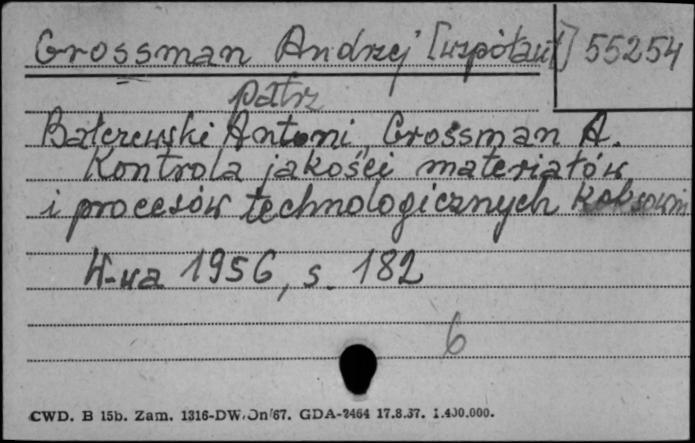 Grossman Andrzej [współaut] 55254
patrz
Bałczewski Antoni, Grossman A.
Kontrola jakości materiałów
i procesów technologicznych koksowni
W-wa 1956, s. 182
6
CWD. B 15b. Zam. 1316-DW/Dn/67. GDA-2464 17.8.67. 1.400.000.